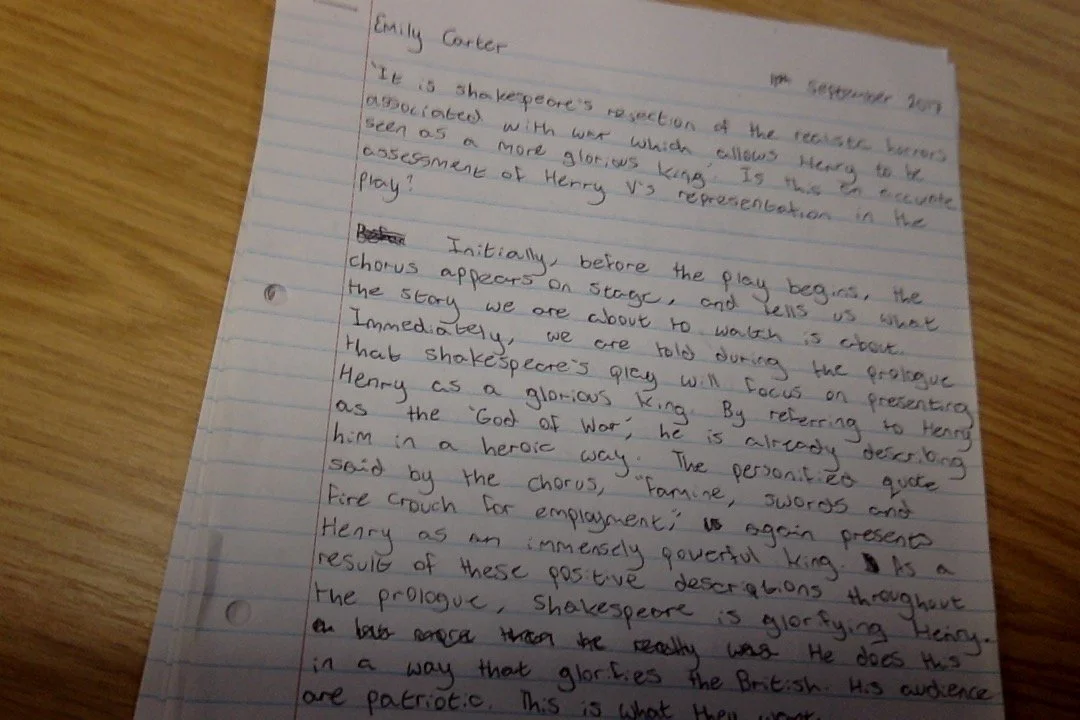 Emily Carter
11th September 2017
'It is shakespeare's rejection of the realistic horrors
associated with war which allows Henry to be
seen as a more glorious king.' Is this an accurate
assessment of Henry V's representation in the
play?
Initially, before the play begins, the
chorus appears on stage, and tells us what
the story we are about to watch is about.
Immediately, we are told during the prologue
that shakespeare's play will focus on presenting
Henry as a glorious king. By referring to Henry
as the 'God of War', he is already describing
him in a heroic way. The personified quote
said by the chorus, "famine, swords and
fire crouch for employment," again presents
Henry as an immensely powerful king. As a
result of these positive descriptions throughout
the prologue, Shakespeare is glorifying Henry.
He does this
in a way that glorifies the British. His audience
are patriotic. This is what they want